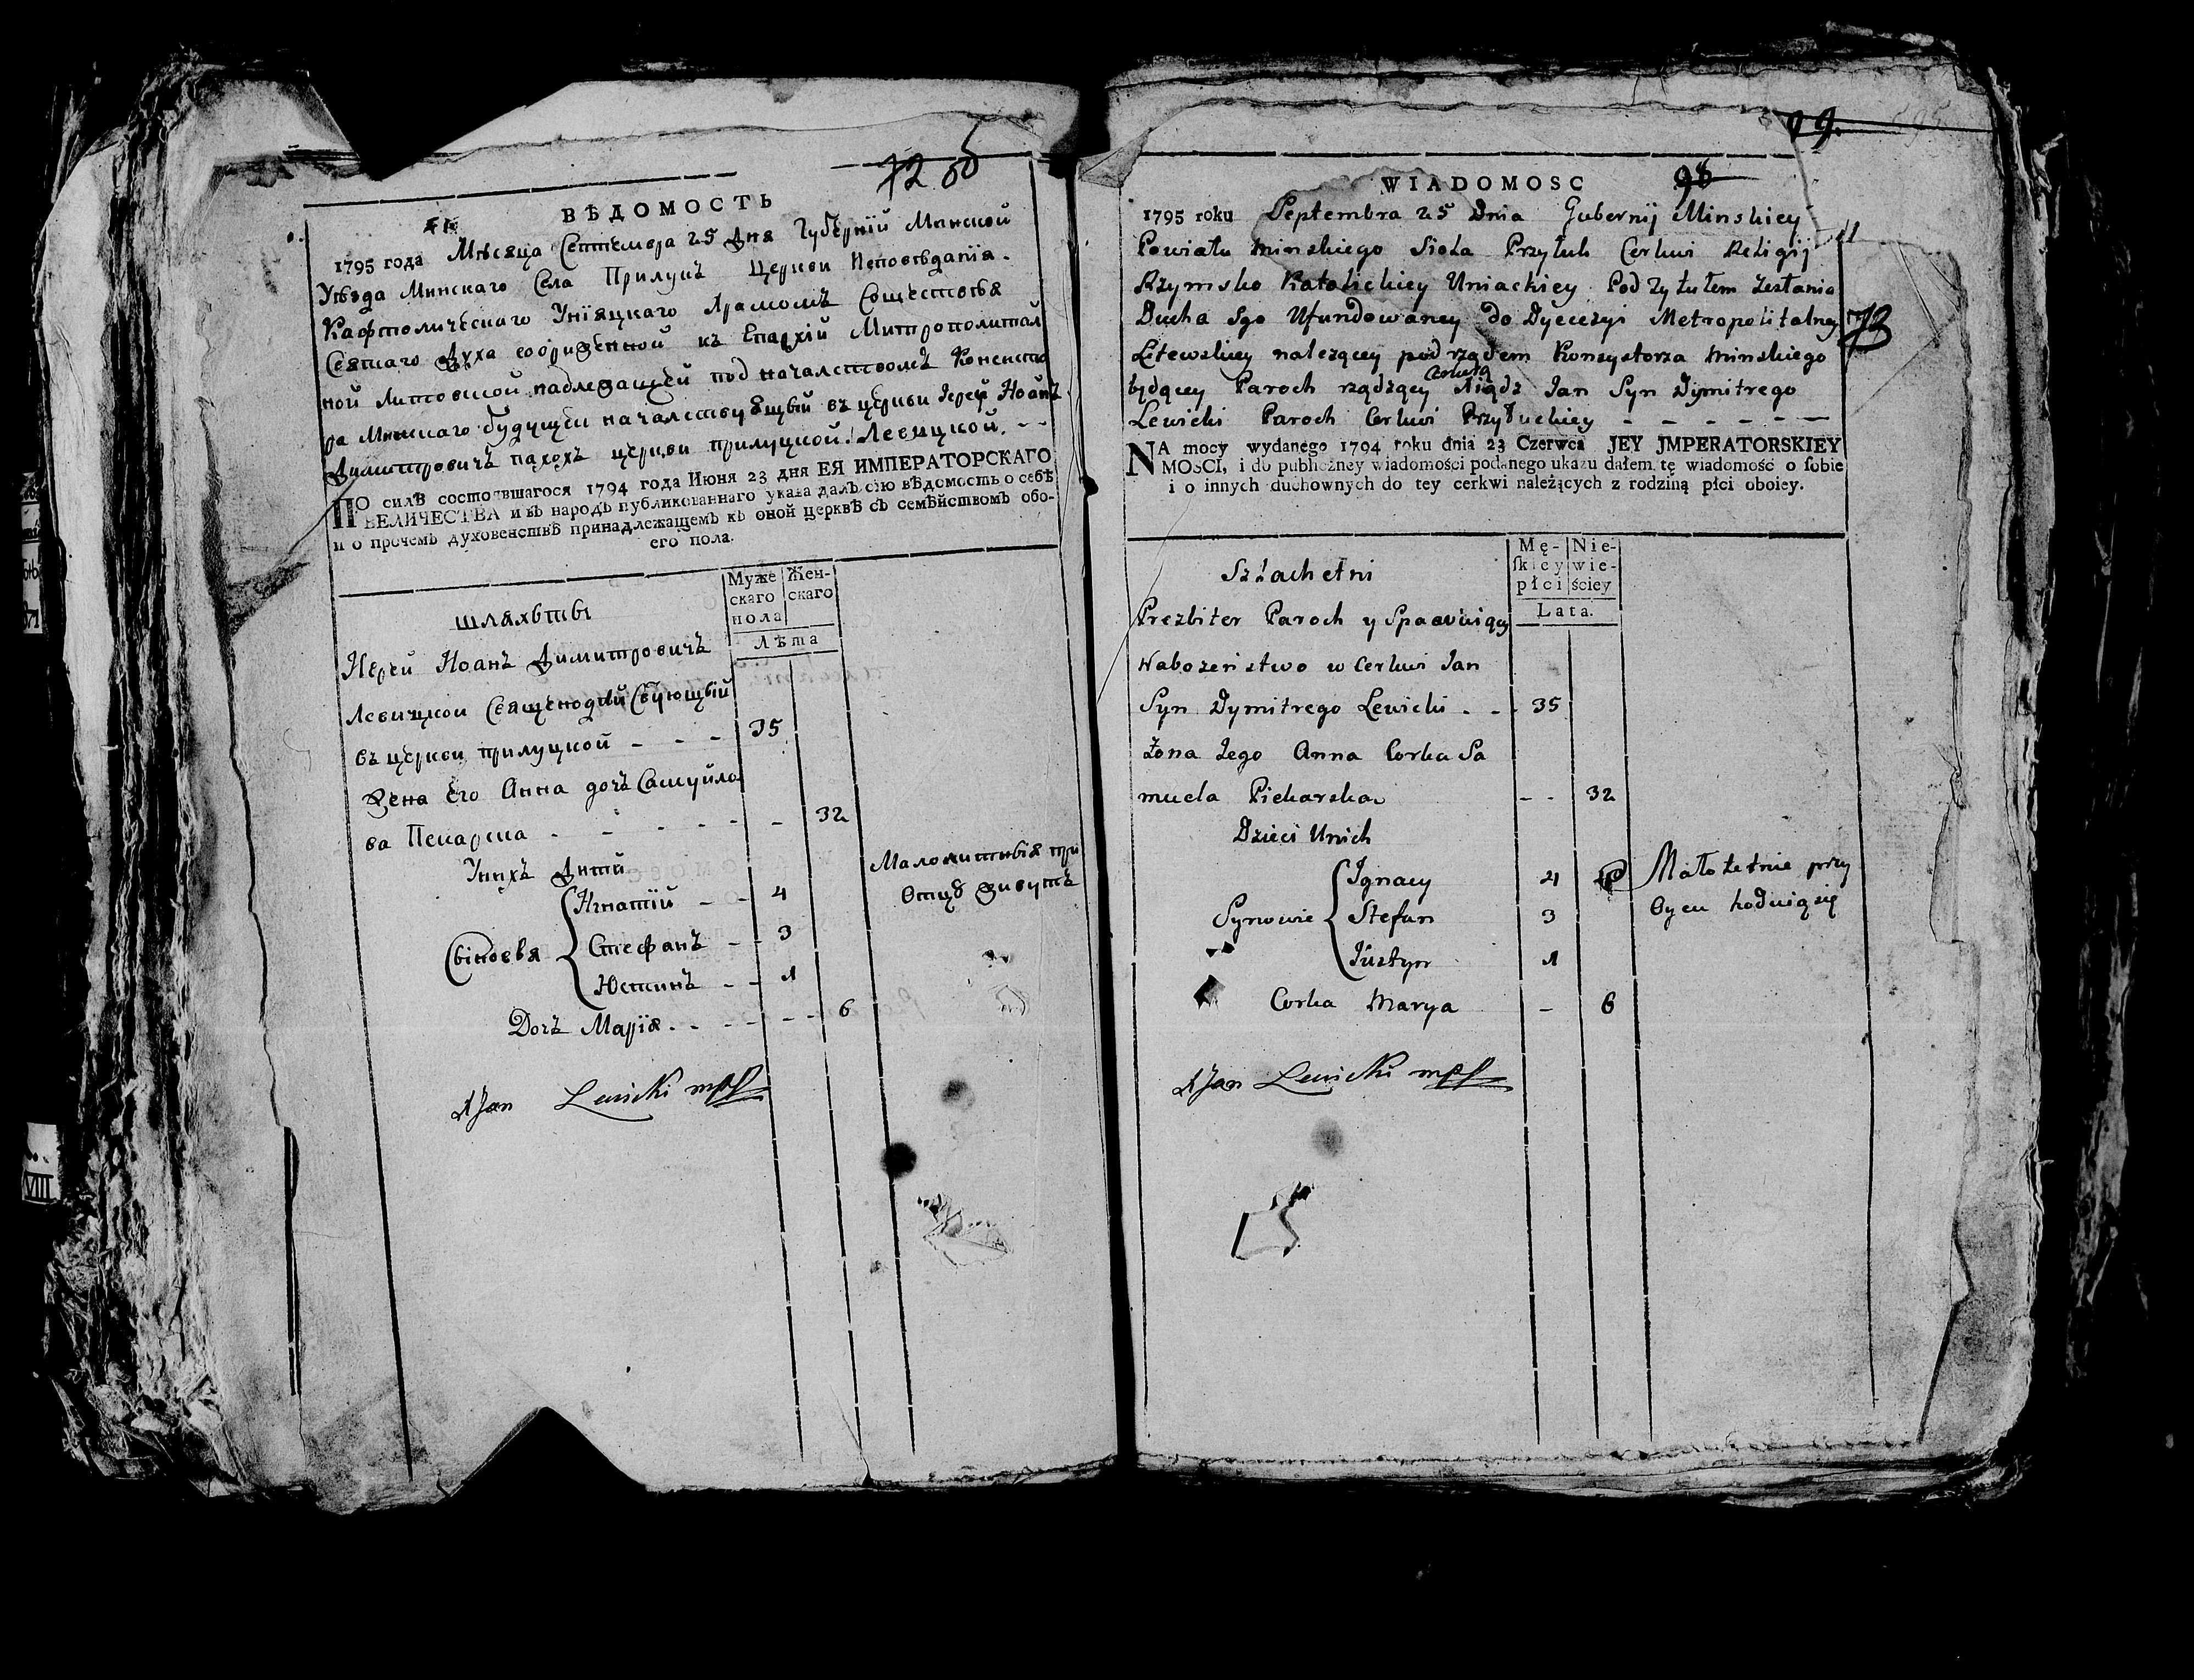 72
ВѢДОМОСТЬ
1795 года Мѣсяца Септемвра 25 дня Губернїй Минской
Уѣзда Минскаго Села Прилукъ Церкви Исповѣданїя
Кафтолическаго Унїяцкаго Храмомъ Сошествовя
Святаго Духа сооруженной къ Епархїй Митрополитал
ной Литовской надлежащей под началством
ра Минскаго будущей началствующый въ церкви Иерей Иоанъ
Димитровичъ парохъ церкви прилуцкой Левицкой
ПО силѣ состоявшагося 1794 года Июня 23 дня ЕЯ ИМПЕРАТОРСКАГО
ВЕЛИЧЕСТВА и въ народъ публикованнаго указа далъ сїю вѣдомость о себѣ
и о прочемъ духовенствѣ принадлежащемъ къ оной церквѣ съ семѣйствомъ обо-
его пола.
Муже Жен-
скаго скаго
пола
Лѣта
шляхьтьі
Иерей Иоанъ Димитровичъ
Левицкои Священодѣйсвующый
въ церкви прилуцкой - - - 35
Жена Его Анна дочъ Самуйло
ва Пекарска - - - - - - 32
Унихъ Дити
Игнатїй - - 4
Малолитныя при
Отцу живутъ
Сыновя Стефанъ - - 3
Юстинъ - - 1
Дочъ Марїя - - - - - - 6
XJan Lewicki mpp
99.
WIADOMOSC 98
1795 roku Septembra 25 Dnia Gubernij Minskiey
Powiatu Minskiego Sioła Przyłuk Cerkwi Religij
Rzymsko Katolickiey Uniackiey Pod Tytułem Zesłania
Ducha Sgo Ufundowaney do Dyecezyi Metropolitalney
73
Litewskiey należącey pod rządem Konsystorza Minskiego
będącey Paroch rządzący Xiądz Jan Syn Dymitrego
Lewicki Paroch Cerkwi Przyłuckiey - - - - - -
NA mocy wydanego 1794 roku dnia 23 Czerwca JEY JMPERATORSKIEY
MOSCI, i do publiczney wiadomości podanego ukazu dałem tę wiadomość o sobie
i o innych duchownych do tey cerkwi należących z rodziną płci oboiey.
Mę- Nie-
skiey wie-
płci ściey
Lata.
Szlachetni
Prezbiter Paroch y Sprawuiący
Nabożenstwo w Cerkwi Jan
Syn Dymitrego Lewicki - - 35
Żona Jego Anna Corka Sa
muela Piekarska - - 32
Dzieci Unich
Ignacy 4
Małoletnie przy
Oycu hoduią się
Synowie Stefan 3
Justyn 1
Corka Marya - 6
XJan Lewicki mpp